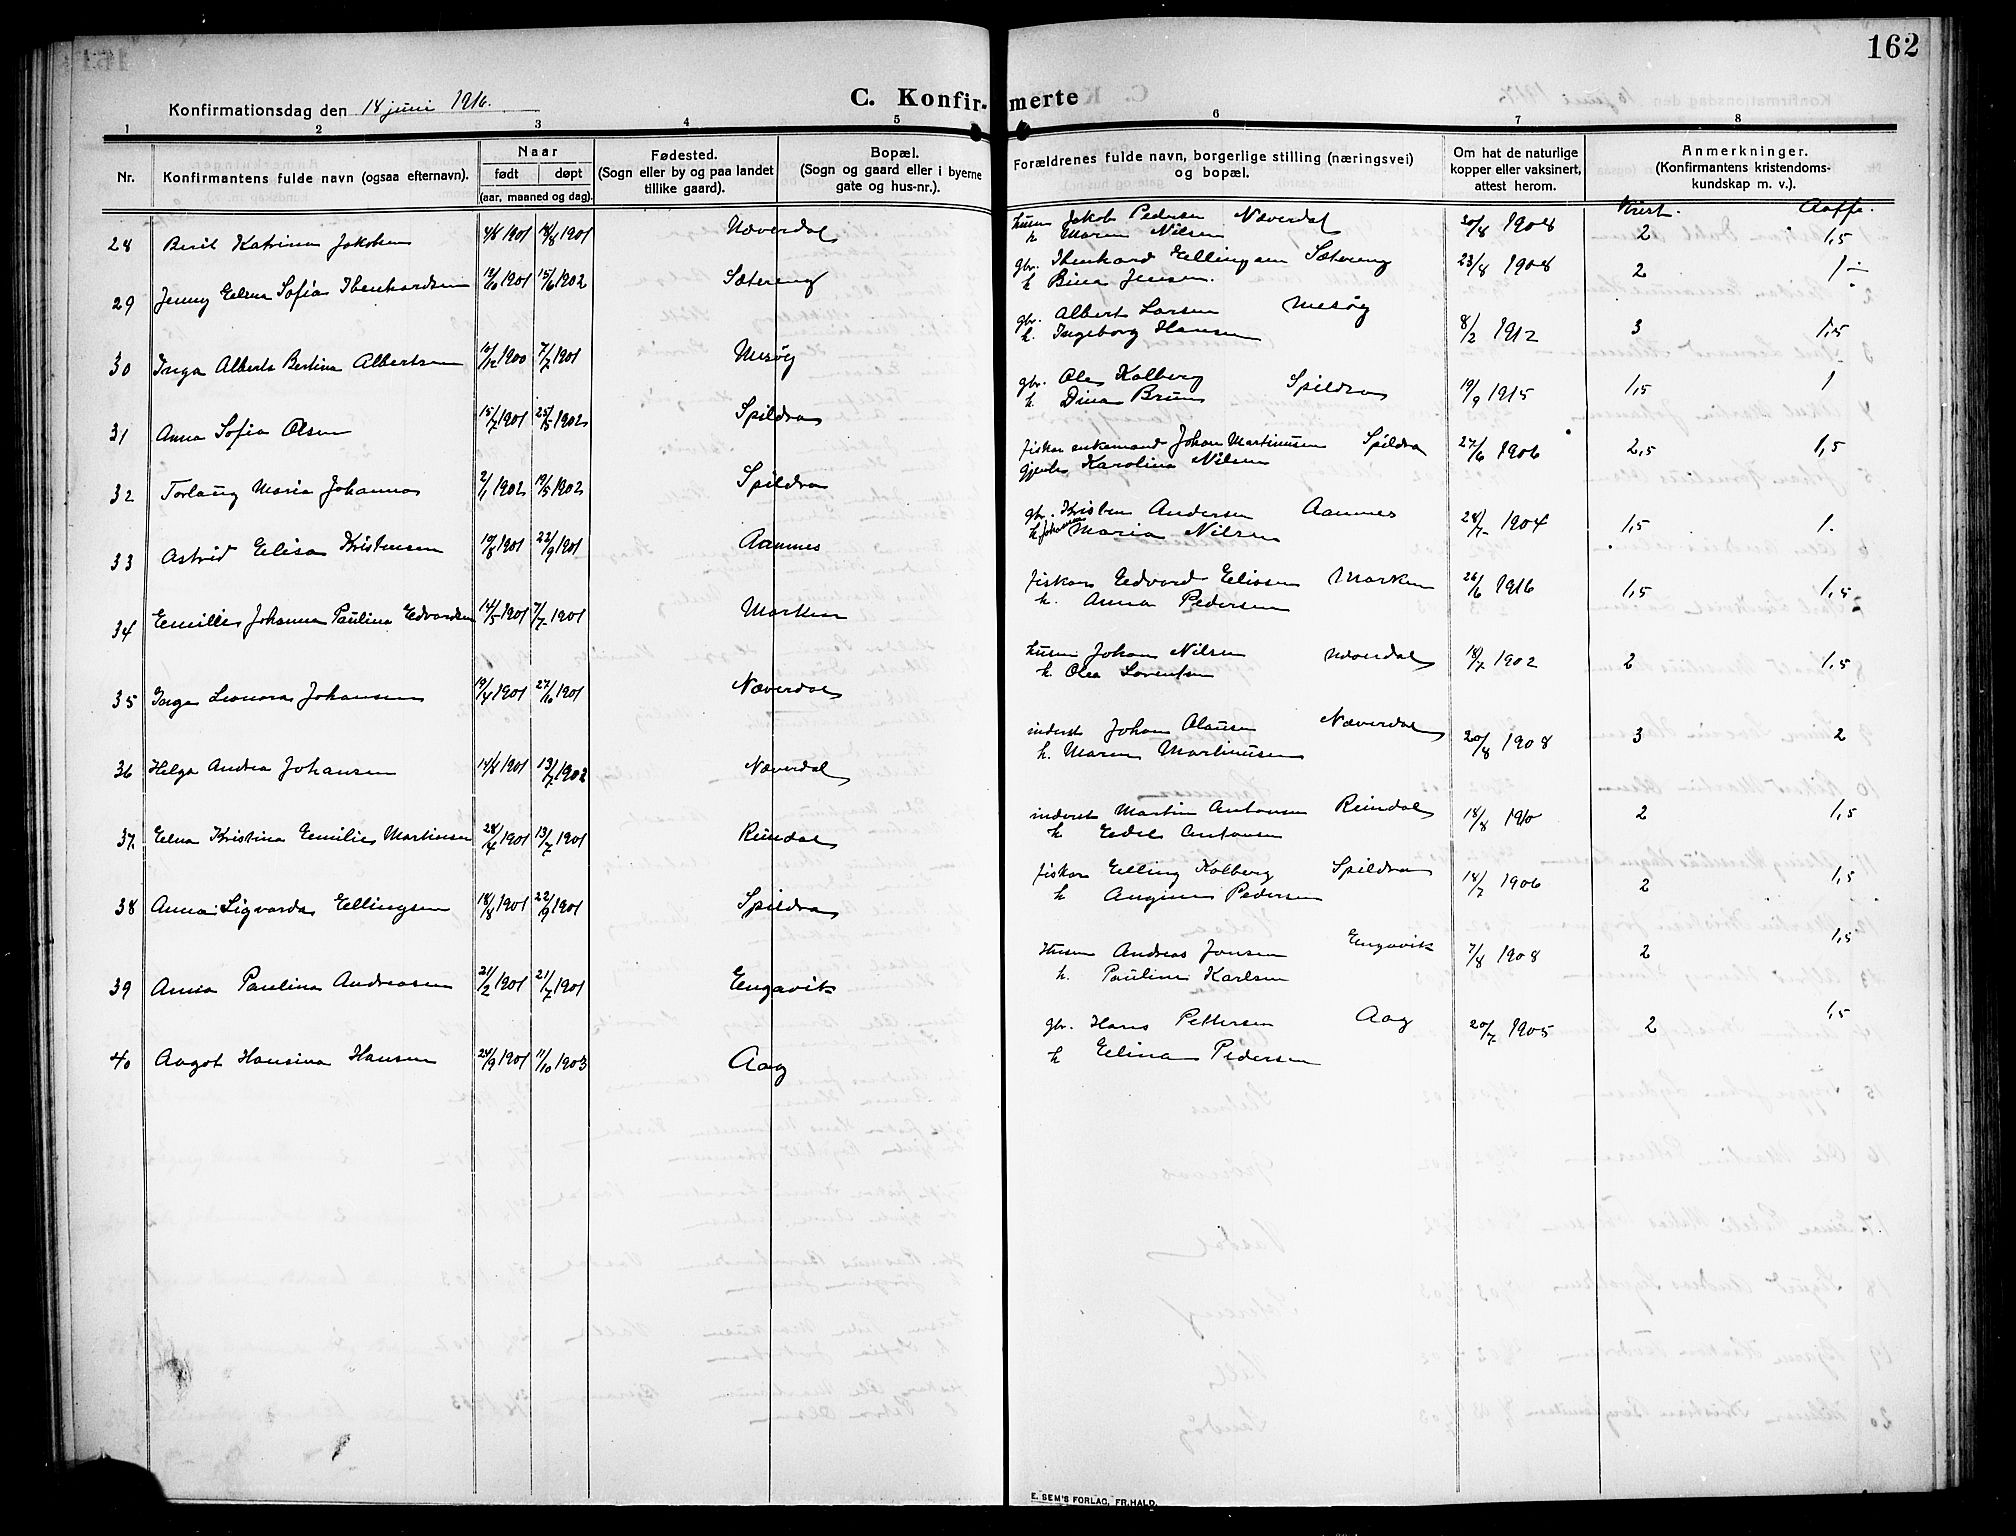 162
Konfirmationsdag den 18 juni 1916.
C. Konfir-merte
1 2 3 4 5 6 7 8
Nr.
Konfirmantens fulde navn (ogsaa efternavn).
Naar
født døpt
(aar, maaned og dag).
Fødested.
(Sogn eller by og paa landet
tillike gaard).
Bopæl.
(Sogn og gaard eller i byerne
gate og hus-nr.).
Forældrenes fulde navn, borgerlige stilling (næringsvei)
og bopæl.
Om hat de naturlige
kopper eller vaksinert,
attest herom.
Anmerkninger.
(Konfirmantens kristendoms-
kundskap m. v.).
28 Beril Katrine Jakobsen 4/8 1901 18/8 1901 Næverdal
husm Jakob Pedersen Næverdal 20/8 1908 2 1,5
h. Maren Nilsen
29 Jenny Elena Sofia Ibenhardsen 12/10 1901 15/6 1902 Sætereng
gbr. Ibenhard Ellingsen Sætereng 23/8 1908 2 1
h Bina Jensen.
30 Inga Alberta Bertina Albertsen 10/12 1900 7/7 1901 Mesøy
gbr. Albert Larsen Mesøy 8/2 1912 3 1,5
h. Ingeborg Hansen
31 Anna Sofia Olsen 15/7 1901 25/5 1902 Spildra
gbr. Ole Kolberg Spildra 19/9 1915 1,5 1
h. Dina Bruun
32 Torlaug Maria Johannes 2/1 1902 19/5 1902 Spildra
fisker enkemand Johan Martinusen Spildra 27/6 1906 2,5 1,5
Karolina Nilsen
33 Astrid Elisa Kristensen 10/8 1901 22/9 1901 Aamnes
gbr. Kristen Andersen Aamnes 28/7 1904 1,5 1.
h. Maria Nilsen
34 Emilie Johanna Paulina Edvardsen 14/5 1901 7/7 1901 Marken
fisker Edvard Eliasen Marken 26/6 1916 1,5 1,5
h. Anna Pedersen
35 Inga Leonora Johansen 19/4 1901 27/10 1901 Næverdal
husm Johan Nilsen Næverdal 18/7 1902 2 1,5
h. Olea Lorentsen
36 Helga Andrea Johansen 14/8 1901 13/7 1902 Næverdal
inderst Johan Olausen Næverdal 20/8 1908 3 2
h. Maren Martinusen
37 Elna Kristina Emilie Martinsen 28/4 1901 13/7 1901 Reindal
inderst Martin Antonsen Reindal 18/8 1910 2 1,5
h Edel Antonsen
38 Anna Sigvarda Ellingsen 18/8 1901 22/9 1901 Spildra
fisker Elling Kolberg Spildra 18/7 1906 2 1,5
h Angine Pedersen
39 Anna Paulina Andreasen 21/2 1901 21/7 1901 Engavik
Husm Andreas Jensen Engavik 7/8 1908 2 1,5
h. Pauline Karlsen
40 Aagot Hansina Hansen 24/9 1901 11/10 1903 Aag
gbr. Hans Pettersen Aag 20/7 1905 2 1,5
h Elina Pedersen
E. SEM'S FORLAG, FR.HALD.